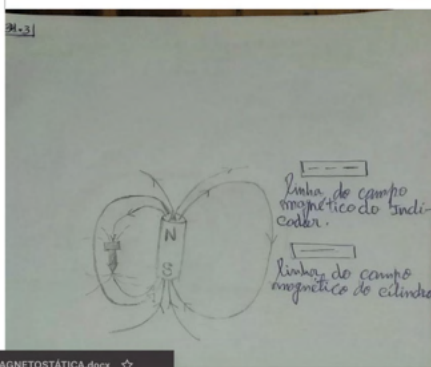 N
S
linha do campo
magnético do Indi-
cador.
linha do campo
magnético do cilindro
AGNETOSTÁTICA.docx